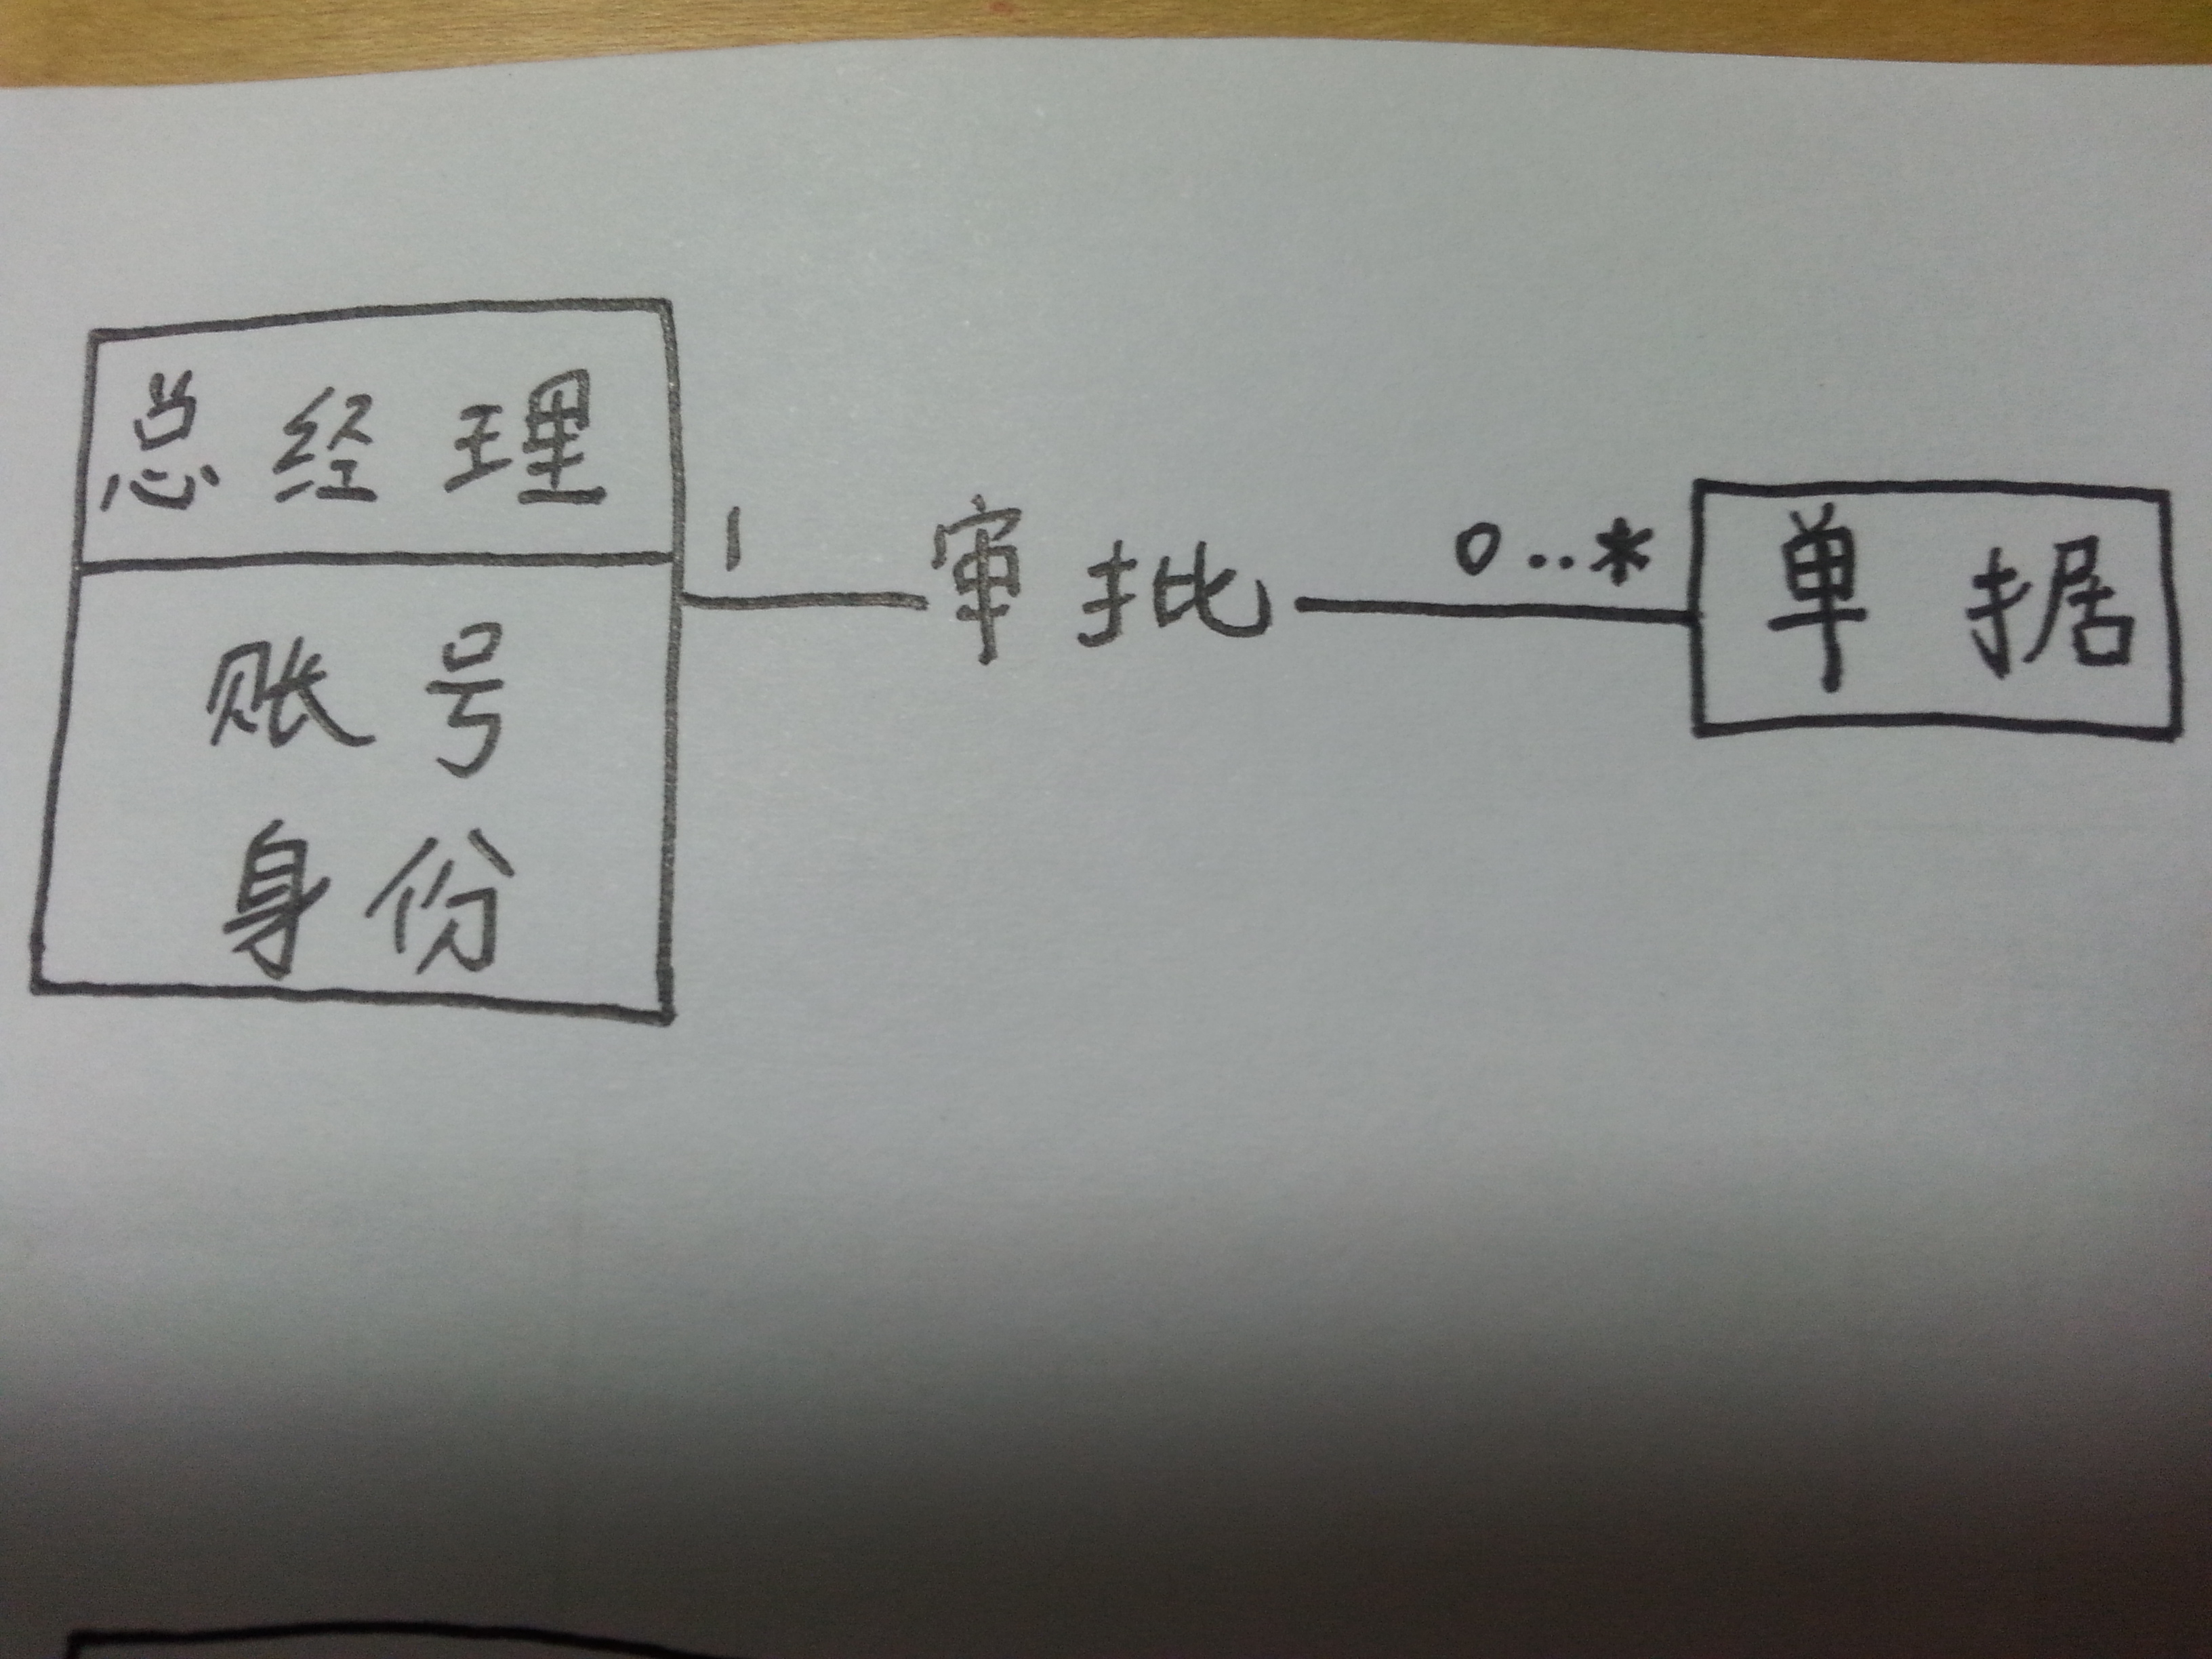 总经理
账号
身份
1 审批 0..*
单据